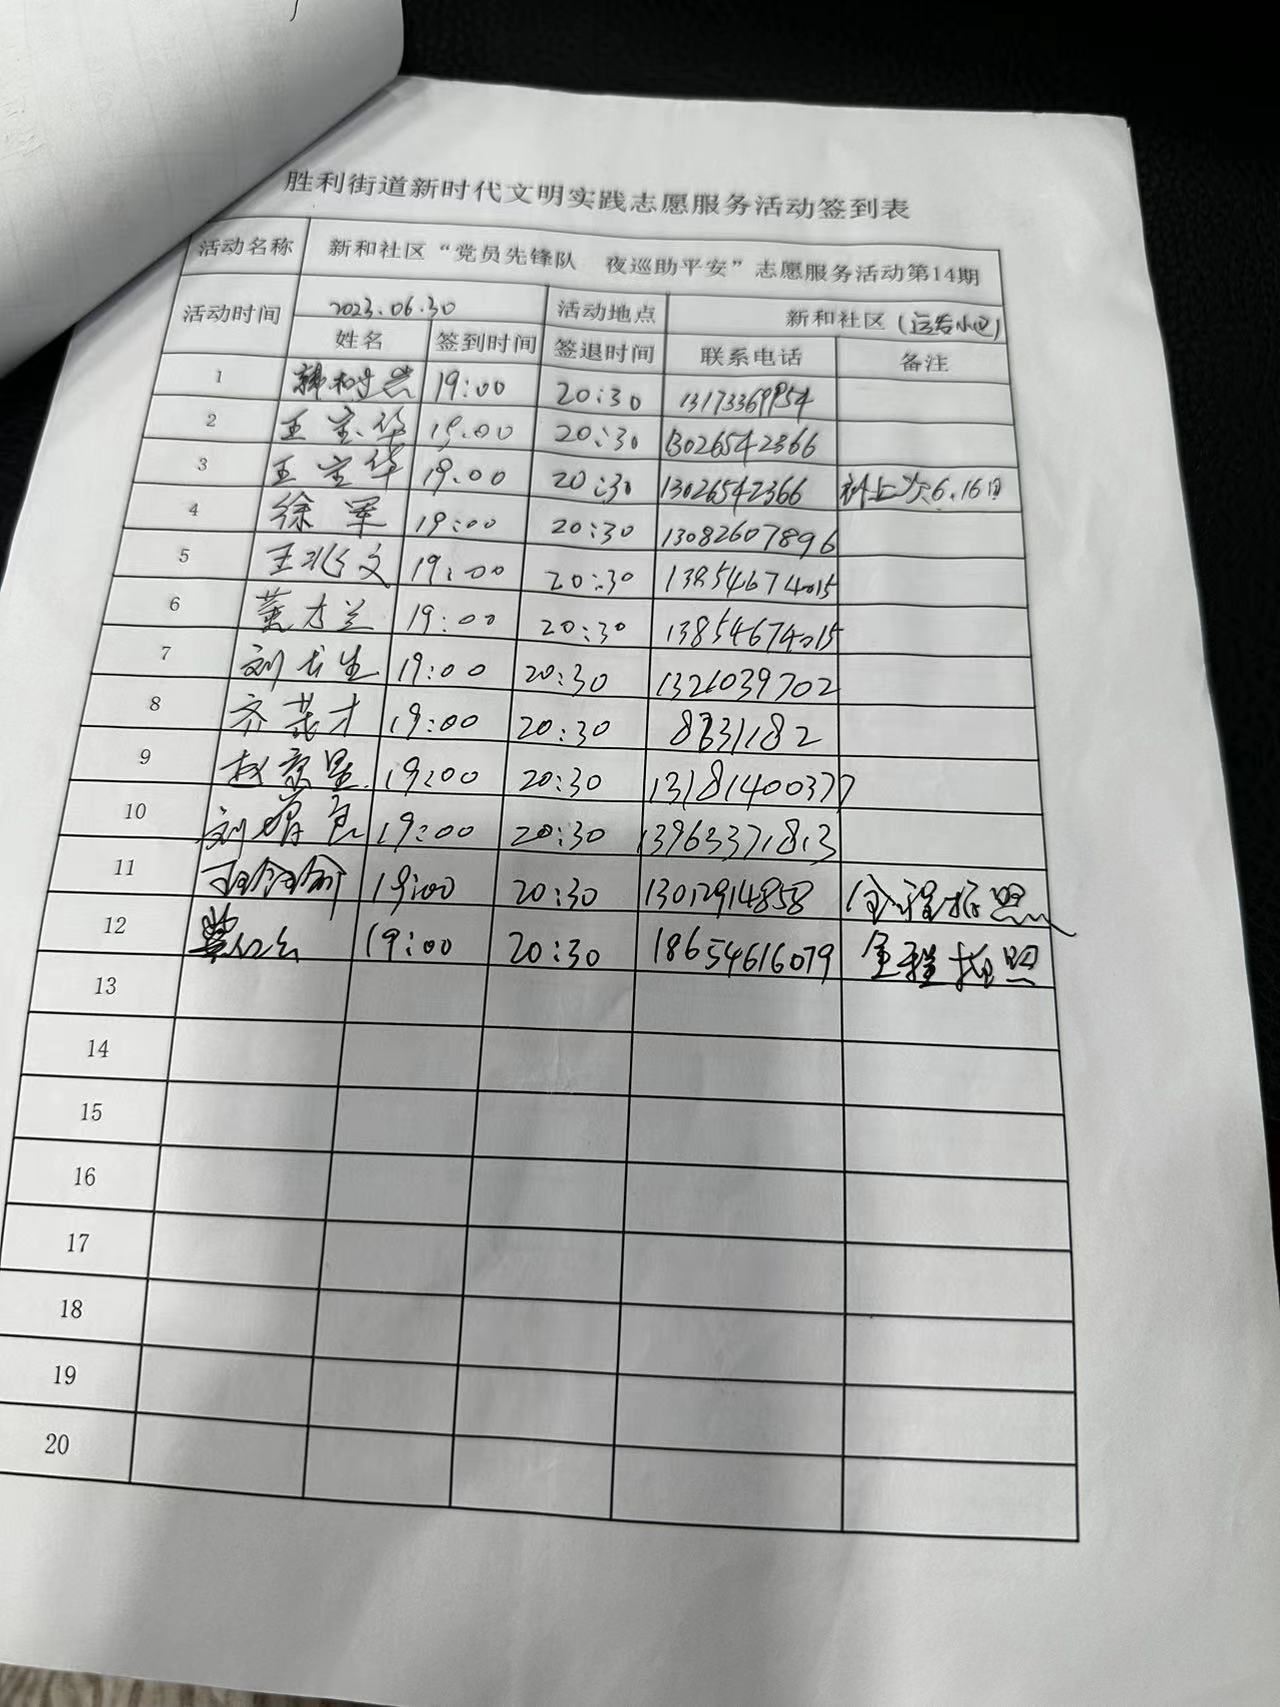 胜利街道新时代文明实践志愿服务活动签到表
活动名称 新和社区“党员先锋队 夜巡助平安”志愿服务活动第14期
活动时间 2023.06.30 活动地点 新和社区(运发小区)
姓名 签到时间 签退时间 联系电话 备注
1 韩树岩 19:00 20:30 13173369954
2 王宝华 19.00 20:30 13026542366
3 王宝华 19.00 20:30 13026542366 补上次6.16日
4 徐军 19:00 20:30 13082607896
5 王兆文 19:00 20:30 13854674015
6 董才兰 19:00 20:30 13854674015
7 刘长生 19:00 20:30 1321039702
8 齐英才 19:00 20:30 8731182
9 赵京星 19:00 20:30 13181400377
10 刘增良 19:00 20:30 13963371813
11 19:00 20:30 13012914858 全程拍照
12 19:00 20:30 18654616079 全程拍照
13
14
15
16
17
18
19
20